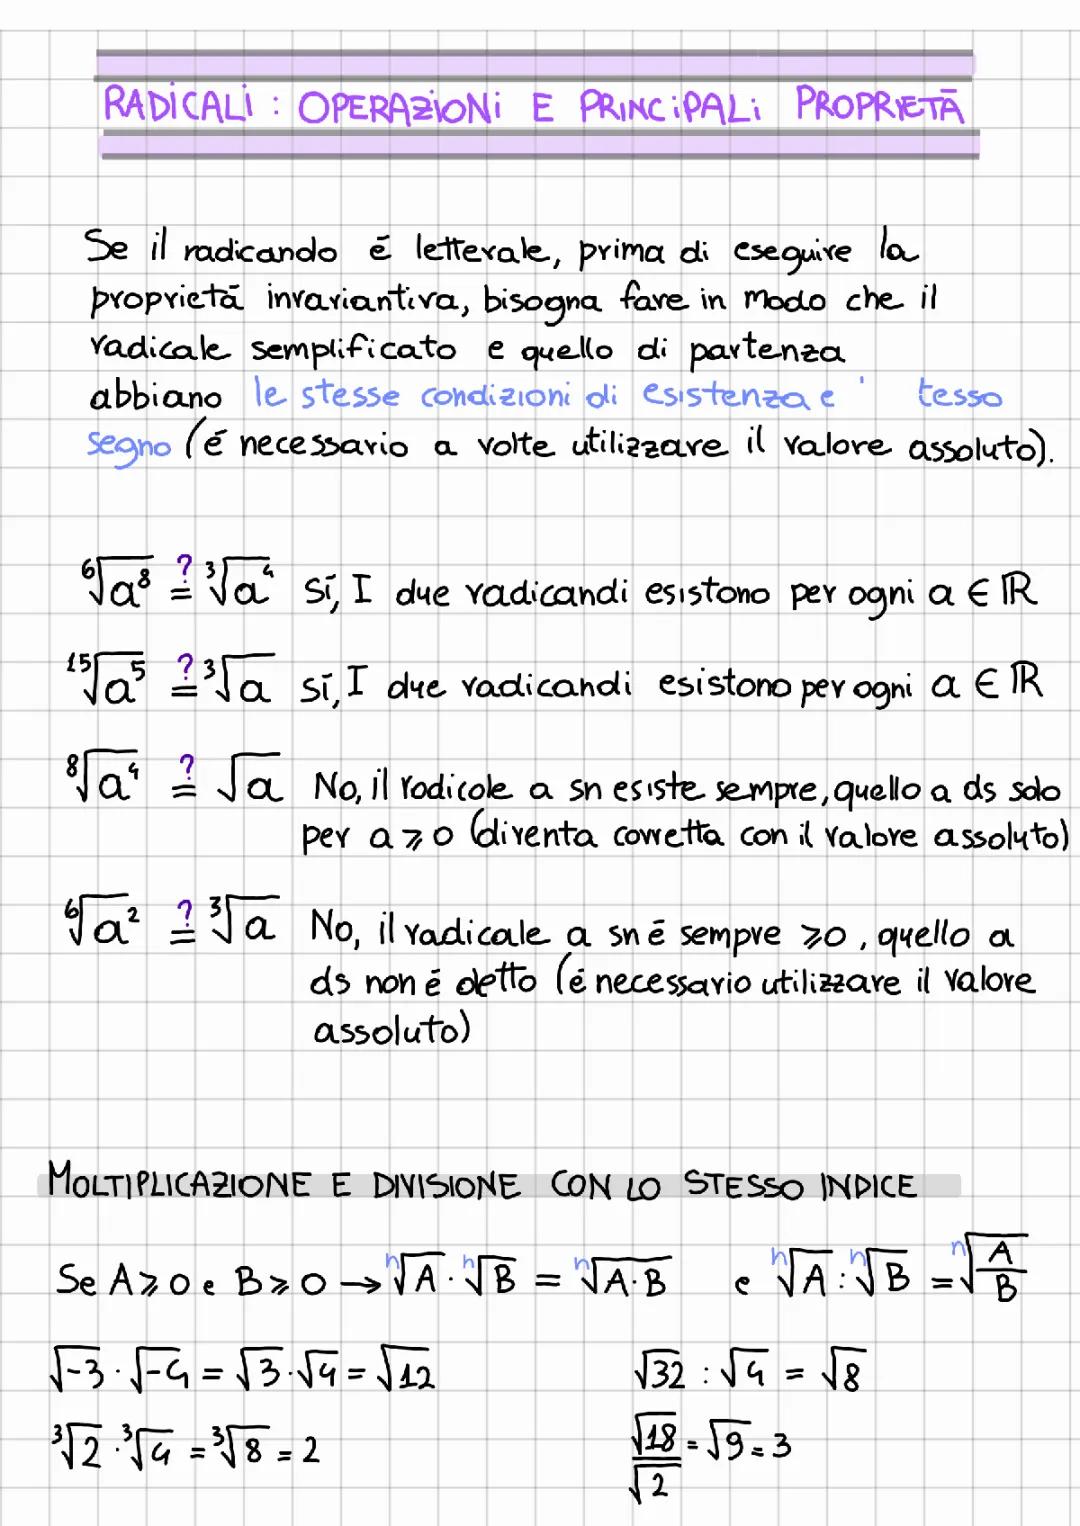 RADICALI : OPERAZIONI E PRINCIPALI PROPRIETĀ
Se il radicando é letterale, prima di eseguire la
proprietā invariantiva, bisogna fare in modo che il
radicale semplificato e quello di partenza
abbiano le stesse condizioni di esistenza e ' tesso
segno (é necessario a volte utilizzare il valore assoluto).
⁶√a⁸ ?= ³√a⁴ sí, I due radicandi esistono per ogni a ∈ ℝ
¹⁵√a⁵ ?= ³√a sí, I due radicandi esistono per ogni a ∈ ℝ
⁸√a⁴ ?= √a No, il radicale a sn esiste sempre, quello a ds solo
per a ⩾ 0 (diventa corretta con il valore assoluto)
⁶√a² ?= ³√a No, il radicale a sn é sempre ⩾0, quello a
ds non é detto (é necessario utilizzare il valore
assoluto)
MOLTIPLICAZIONE E DIVISIONE CON LO STESSO INDICE
Se A⩾0 e B⩾0 → ⁿ√A · ⁿ√B = ⁿ√A·B e ⁿ√A : ⁿ√B = ⁿ√(A/B)
√-3 · √-4 = √3 · √4 = √12 √32 : √4 = √8
³√2 · ³√4 = ³√8 = 2 √18/√2 = √9 = 3